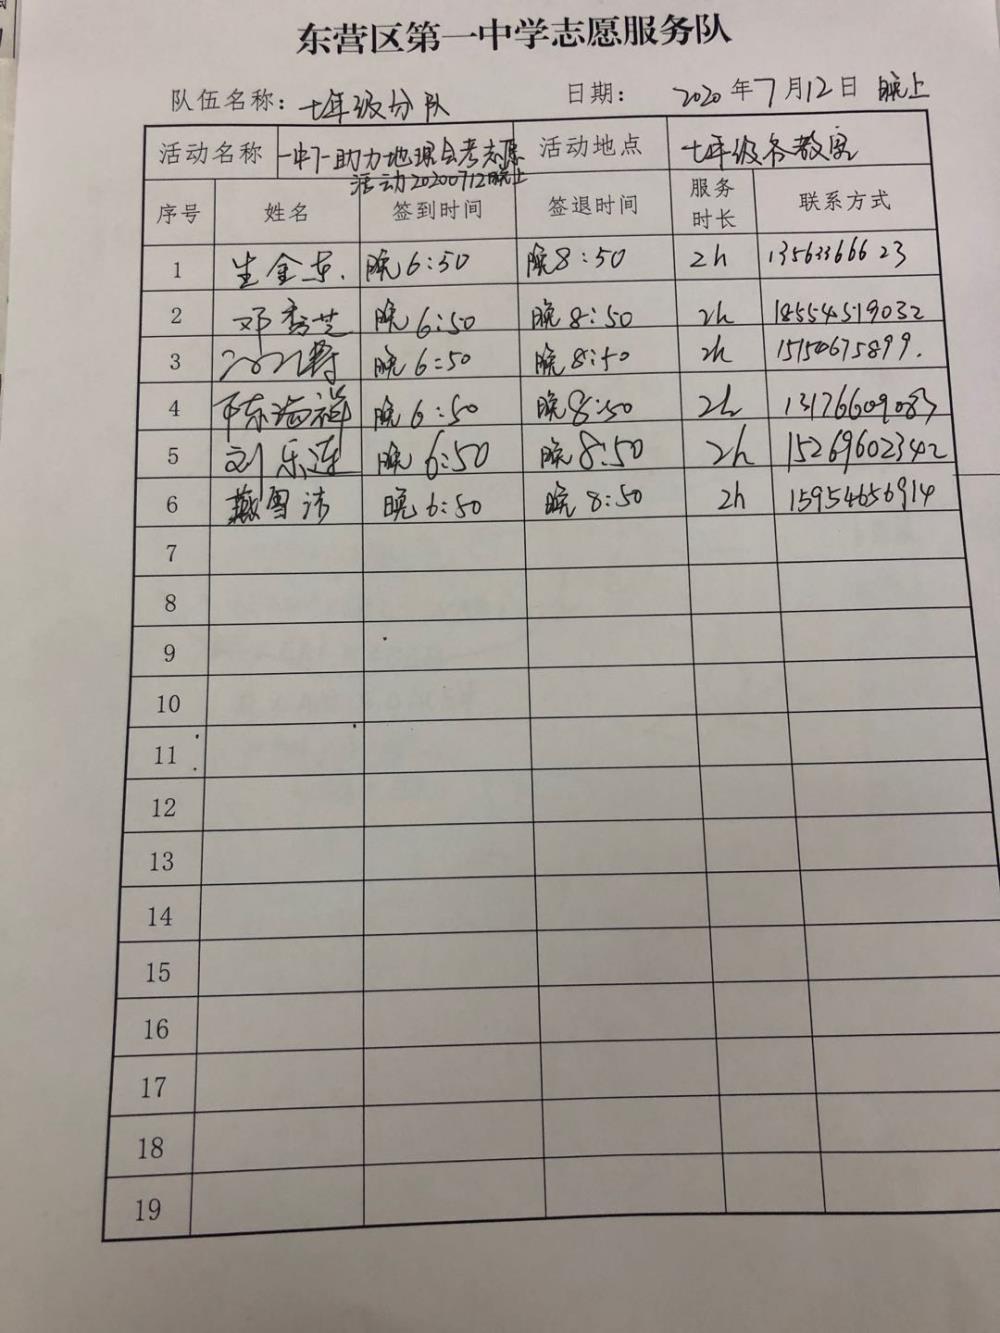 东营区第一中学志愿服务队
队伍名称: 七年级分队 日期: 2020年7月12日 晚上
活动名称 一中7-助力地理会考志愿活动20200712晚上 活动地点 七年级各教室
序号 姓名 签到时间 签退时间 服务时长 联系方式
1 生金东. 晚6:50 晚8:50 2h 13563366623
2 邓秀芝 晚6:50 晚8:50 2h 18554519032
3 晚6:50 晚8:50 2h
4 陈海祥 晚6:50 晚8:50 2h 13176609083
5 刘乐莲 晚6:50 晚8:50 2h 15269602342
6 晚6:50 晚8:50 2h 15954656914
7
8
9
10
11
12
13
14
15
16
17
18
19